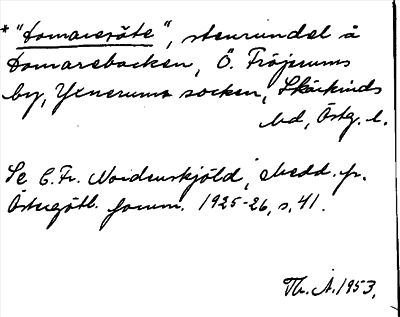 * "Domaresäte", stenrundel å
Domarebacken, Ö. Fröjerums
by, Yxnerums socken, Skärkinds
hd, Östg. l.
Se C. Fr. Nordenskjöld, Medd. fr.
Östergötl. fornm. 1925-26, s. 41.
Th. A. 1953.